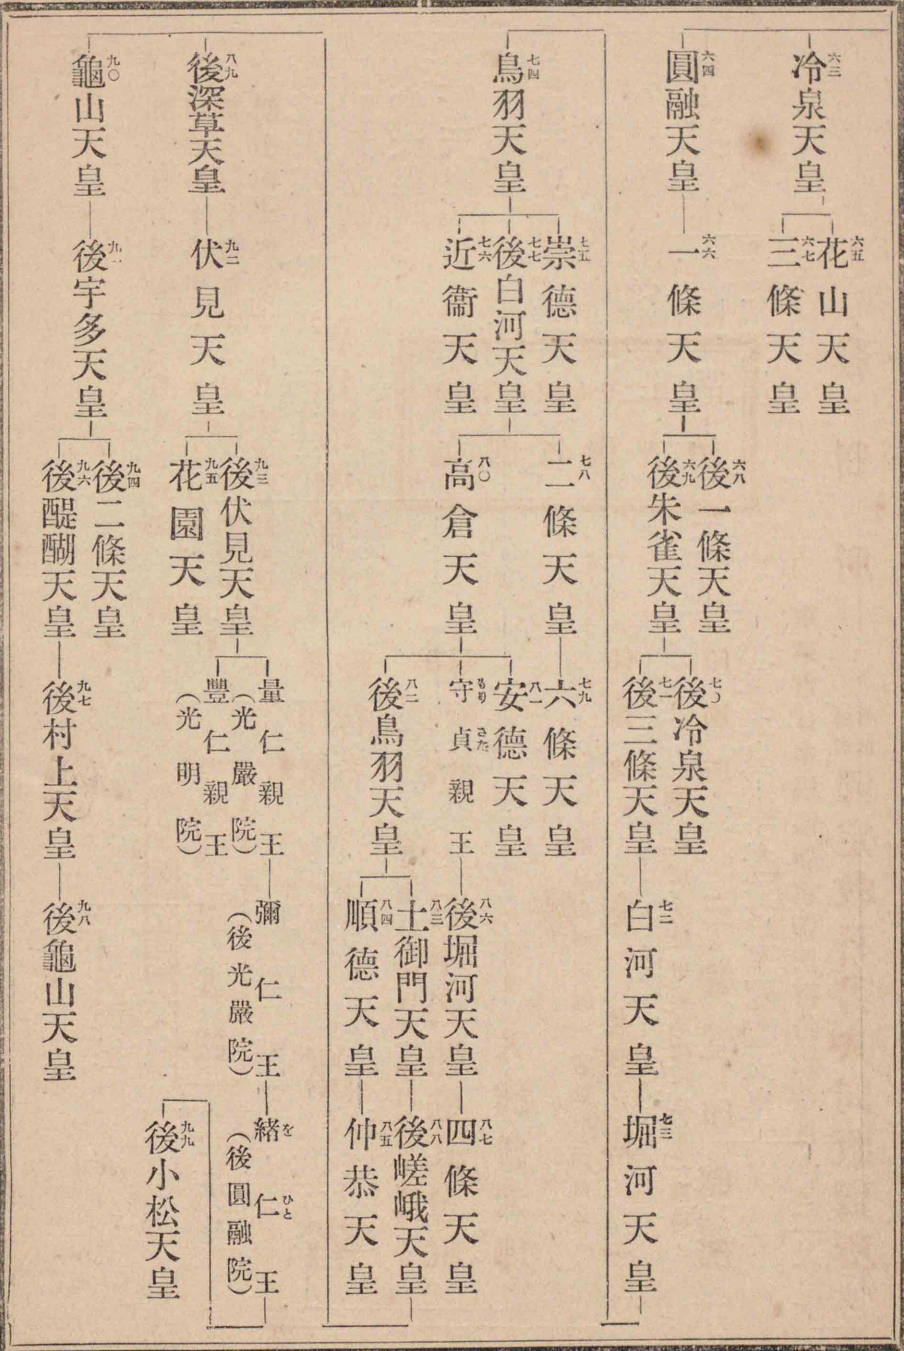 六三 冷泉天皇
六五 花山天皇
六七 三條天皇
六四 圓融天皇
六六 一條天皇
六八 後一條天皇
六九 後朱雀天皇
七〇 後冷泉天皇
七一 後三條天皇
七二 白河天皇
七三 堀河天皇
七四 鳥羽天皇
七五 崇德天皇
七七 後白河天皇
七六 近衞天皇
七八 二條天皇
七九 六條天皇
八〇 高倉天皇
八一 安德天皇
守貞親王 もりさだ
八二 後鳥羽天皇
八六 後堀河天皇
八七 四條天皇
八三 土御門天皇
八八 後嵯峨天皇
八四 順德天皇
八五 仲恭天皇
八九 後深草天皇
九二 伏見天皇
九三 後伏見天皇
九五 花園天皇
量仁親王
(光嚴院)
豐仁親王
(光明院)
彌仁王
(後光嚴院)
緖仁王 をひと
(後圓融院)
九九 後小松天皇
九〇 龜山天皇
九一 後宇多天皇
九四 後二條天皇
九六 後醍醐天皇
九七 後村上天皇
九八 後龜山天皇